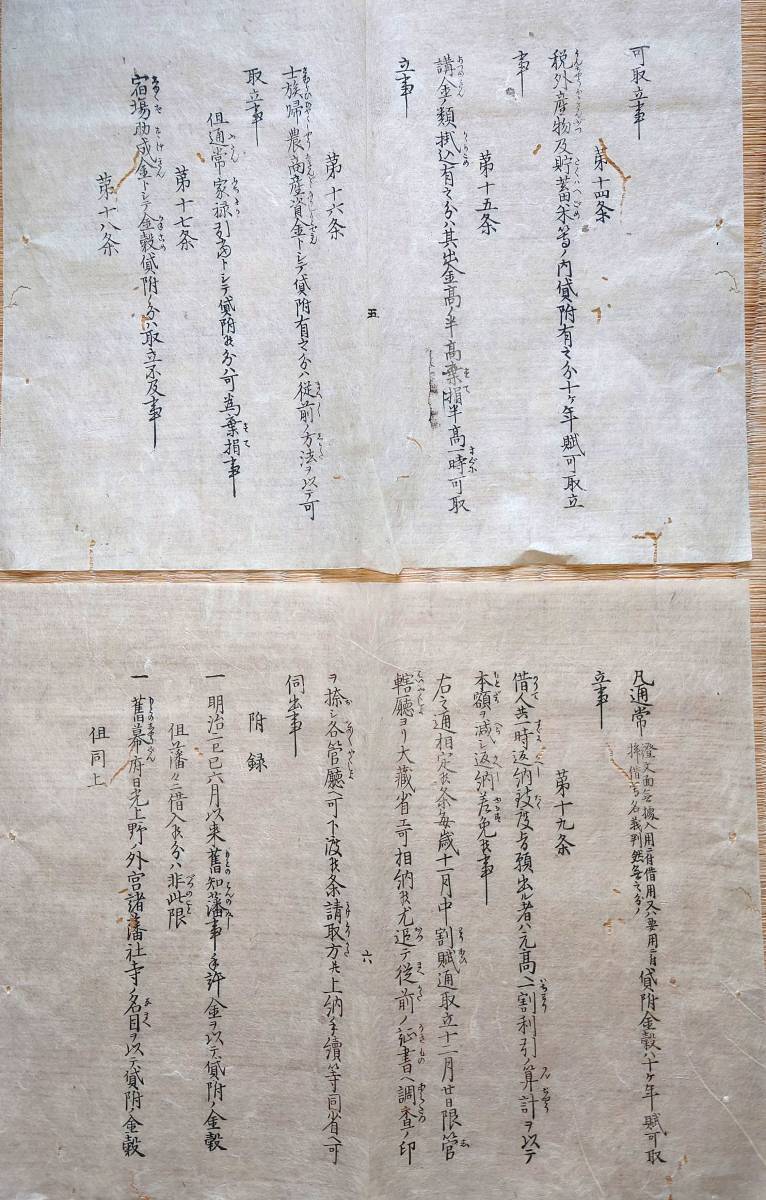 可取立事
第十四条
税外産物及貯蓄米等ノ内貸附有之分十ケ年賦可取立
事
第十五条
講金ノ類掛込有之分ハ其出金高ノ半高棄捐半高一時可取
立事
第十六条
士族帰農商産資金トシテ貸附有之分ハ従前ノ方法ヲ以テ可
取立事
但通常家禄引当トシテ貸附候分ハ可為棄捐事
第十七条
宿場助成金トシテ金穀貸附ノ分ハ取立不及事
第十八条
五
凡通常
証文面無據入用ニ付借用又ハ要用ニ付
拝借等名義判然無之分ノ
貸附金穀ハ十ケ年賦可取
立事
第十九条
借人共一時返納致度旨願出ル者ハ元高ヘ一割利引ノ算計ヲ以テ
本額ヲ減シ返納差免候事
右之通相定候条毎歳十一月中割賦通取立十二月廿日限管
轄庁ヨリ大蔵省エ可相納候尤追テ従前ノ証書ヘ調査ノ印
ヲ捺シ各管庁ヘ可下渡候条請取方共上納手續等同省ヘ可
伺出事
六
附録
一 明治二己巳六月以来舊知藩事手許金ヲ以テ貸附ノ金穀
但藩々ニ借入候分ハ非此限
一 舊幕府日光上野ノ外宮諸藩社寺ノ名目ヲ以テ貸附ノ金穀
但同上